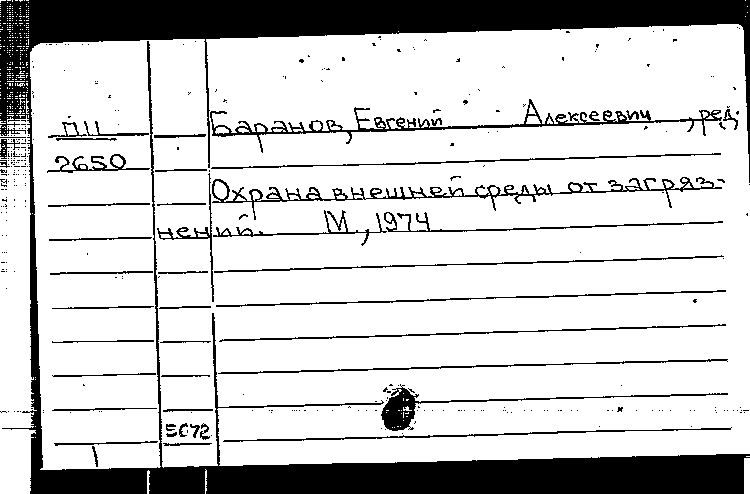 П11 Баранов, Евгений Алексеевич, ред.
2650
Охрана внешней среды от загряз-
нений. М, 1974
5672